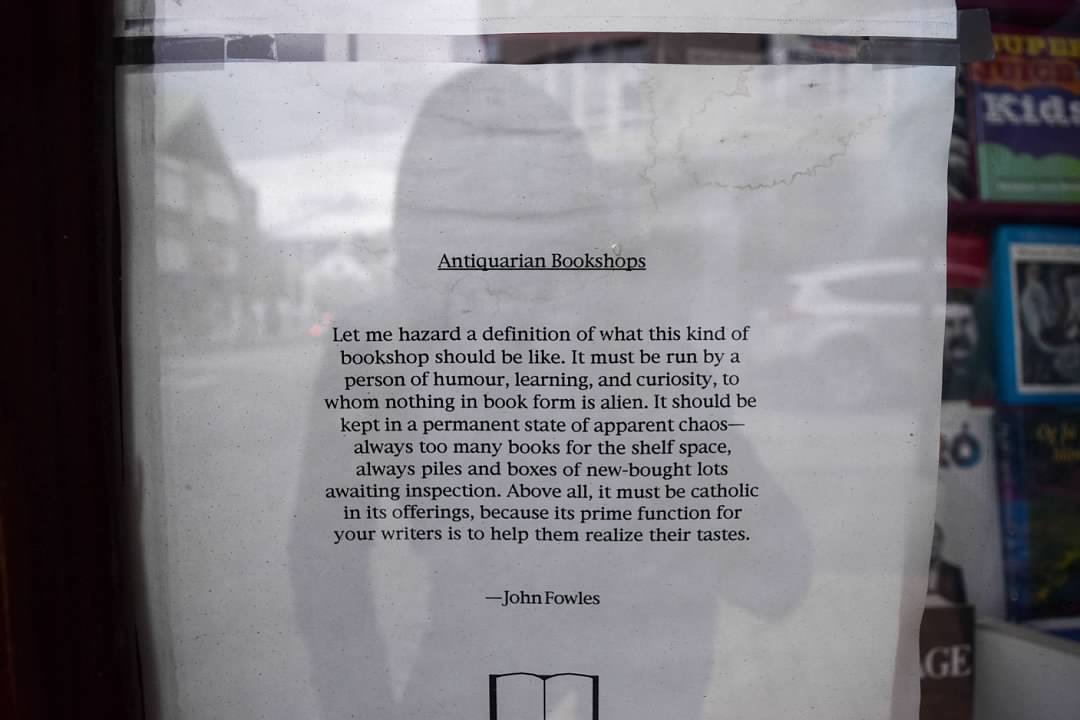 Antiquarian Bookshops
Let me hazard a definition of what this kind of
bookshop should be like. It must be run by a
person of humour, learning, and curiosity, to
whom nothing in book form is alien. It should be
kept in a permanent state of apparent chaos—
always too many books for the shelf space,
always piles and boxes of new-bought lots
awaiting inspection. Above all, it must be catholic
in its offerings, because its prime function for
your writers is to help them realize their tastes.
—John Fowles
Kids